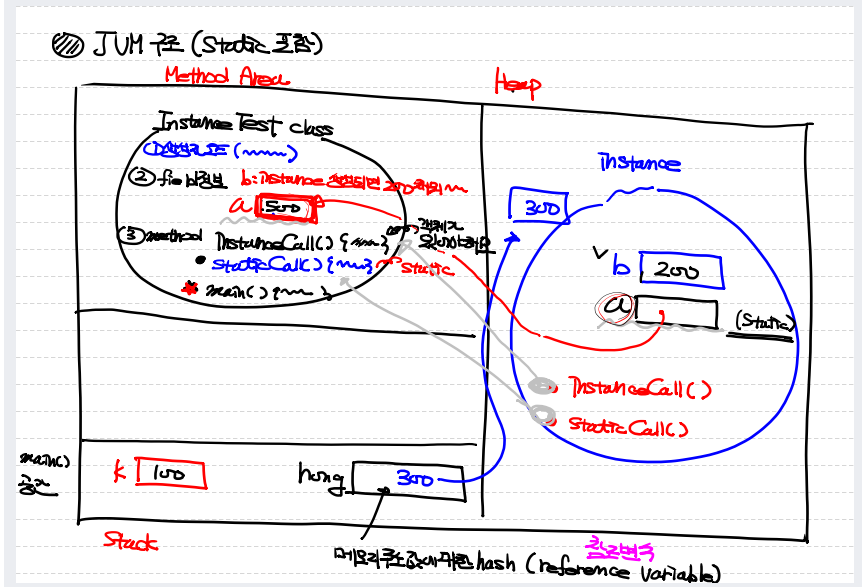 JVM 구조 (Static 포함)
Method Area
Heap
InstanceTest class
② field정보 b: instance 생성되면 200
a 500
③ method InstanceCall() { } 객체가
StaticCall() { } static
main() { }
Instance
300
b 200
a
(Static)
InstanceCall()
StaticCall()
main()
공간
k 100
hong 300
Stack
참조변수
메모리 주소값에 대한 hash (reference variable)